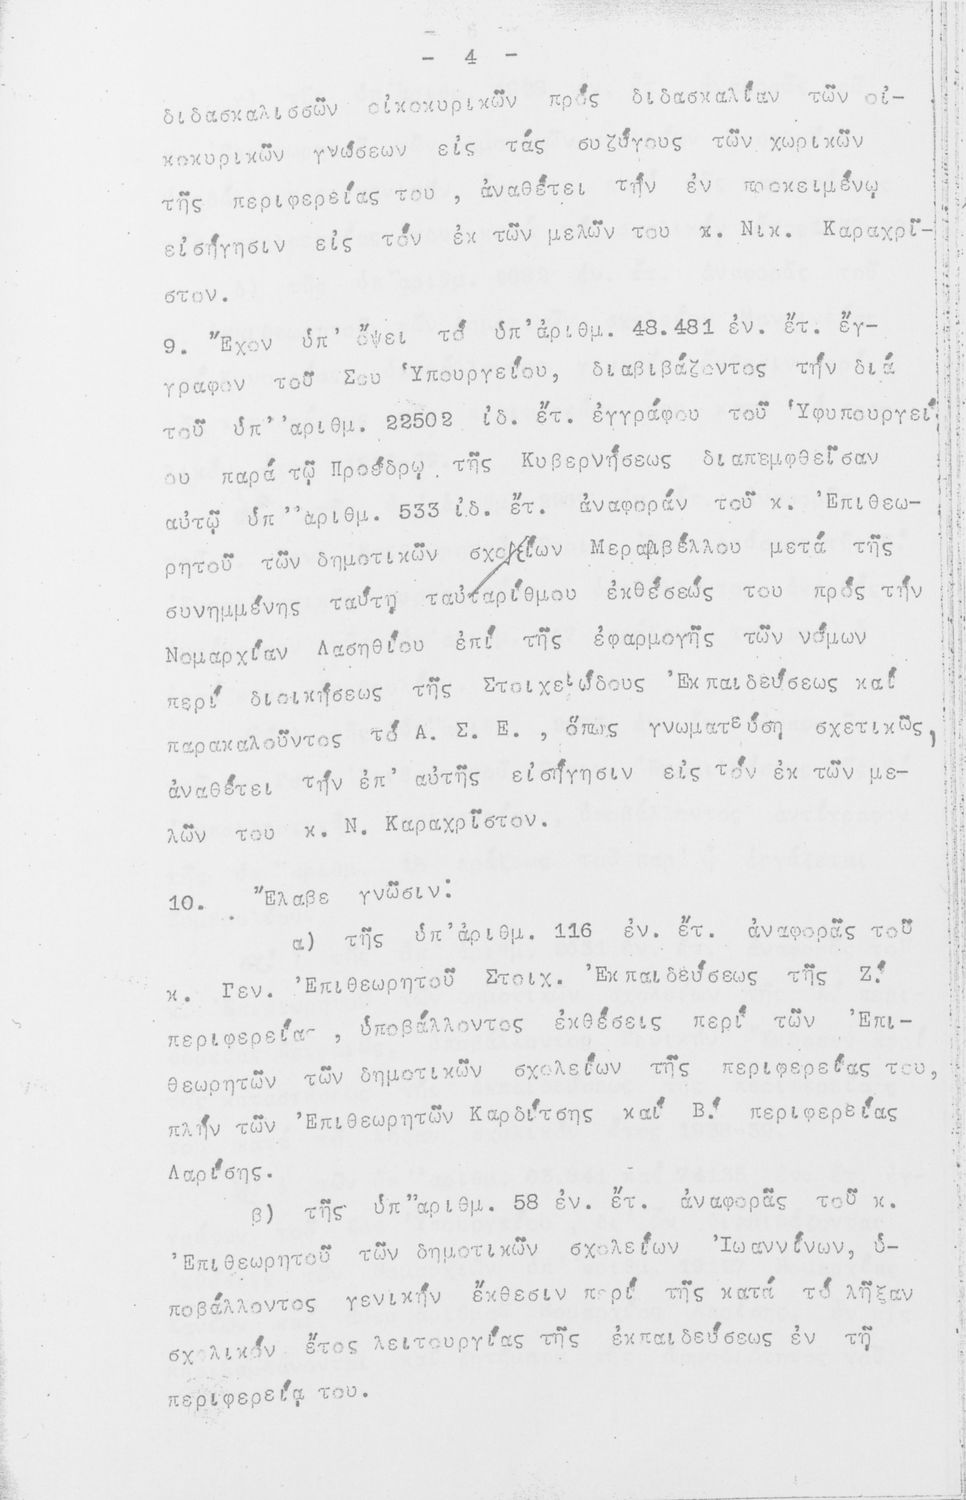 - 4 -
διδασκαλισσῶν οἰκοκυρικῶν πρός διδασκαλίαν τῶν οἰ-
κοκυρικῶν γνώσεων εἰς τάς συζύγους τῶν χωρικῶν
τῆς περιφερείας του , ἀναθέτει τήν ἐν προκειμένῳ
εἰσήγησιν εἰς τόν ἐκ τῶν μελῶν του κ. Νικ. Καραχρῖ-
στον.
9. Ἔχον ὑπ' ὄψει τό ὑπ'ἀριθμ. 48.481 ἐν. ἔτ. ἔγ-
γραφον τοῦ Σου Ὑπουργείου, διαβιβάζοντος τήν διά
τοῦ ὑπ''αριθμ. 22502 ἰδ. ἔτ. ἐγγράφου τοῦ Ὑφυπουργεί
ου παρά τῷ Προέδρῳ τῆς Κυβερνήσεως διαπεμφθεῖσαν
αὐτῷ ὑπ''ἀριθμ. 533 ἰδ. ἔτ. ἀναφοράν τοῦ κ. Ἐπιθεω-
ρητοῦ τῶν δημοτικῶν σχολείων Μεραμβέλλου μετά τῆς
συνημμένης ταύτῃ ταὐταρίθμου ἐκθέσεώς του πρός τήν
Νομαρχίαν Λασηθίου ἐπί τῆς ἐφαρμογῆς τῶν νόμων
περί διοικήσεως τῆς Στοιχειώδους Ἐκπαιδεύσεως καί
παρακαλοῦντος τό Α. Σ. Ε. , ὅπως γνωματεύσῃ σχετικῶς,
ἀναθέτει τήν ἐπ' αὐτῆς εἰσήγησιν εἰς τόν ἐκ τῶν με-
λῶν του κ. Ν. Καραχρῖστον.
10. Ἔλαβε γνῶσιν:
α) τῆς ὑπ'ἀριθμ. 116 ἐν. ἔτ. ἀναφορᾶς τοῦ
κ. Γεν. Ἐπιθεωρητοῦ Στοιχ. Ἐκπαιδεύσεως τῆς Ζ!
περιφερεία- , ὑποβάλλοντος ἐκθέσεις περί τῶν Ἐπι-
θεωρητῶν τῶν δημοτικῶν σχολείων τῆς περιφερείας του,
πλήν τῶν Ἐπιθεωρητῶν Καρδίτσης καί Β! περιφερείας
Λαρίσης.
β) τῆς ὑπ''αριθμ. 58 ἐν. ἔτ. ἀναφορᾶς τοῦ κ.
Ἐπιθεωρητοῦ τῶν δημοτικῶν σχολείων Ἰωαννίνων, ὑ-
ποβάλλοντος γενικήν ἔκθεσιν περί τῆς κατά τό λῆξαν
σχολικόν ἔτος λειτουργίας τῆς ἐκπαιδεύσεως ἐν τῇ
περιφερείᾳ του.